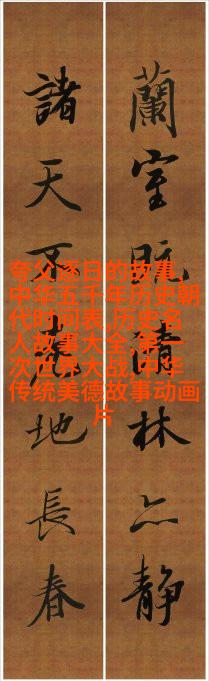 蘭室既清林亦静
諸天不老地長春
夸父逐日的故事,
中华五千年历史朝
代时间表,历史名
人故事大全,第一
次世界大战,中华
传统美德故事动画
片